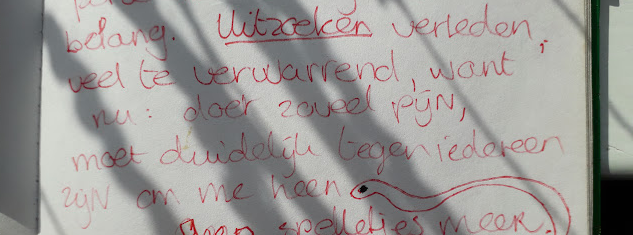 belang. Uitzoeken verleden,
veel te verwarrend, want
nu: doet zoveel pijn,
moet duidelijk tegen iedereen
zijn om me heen
geen spelletjes meer.